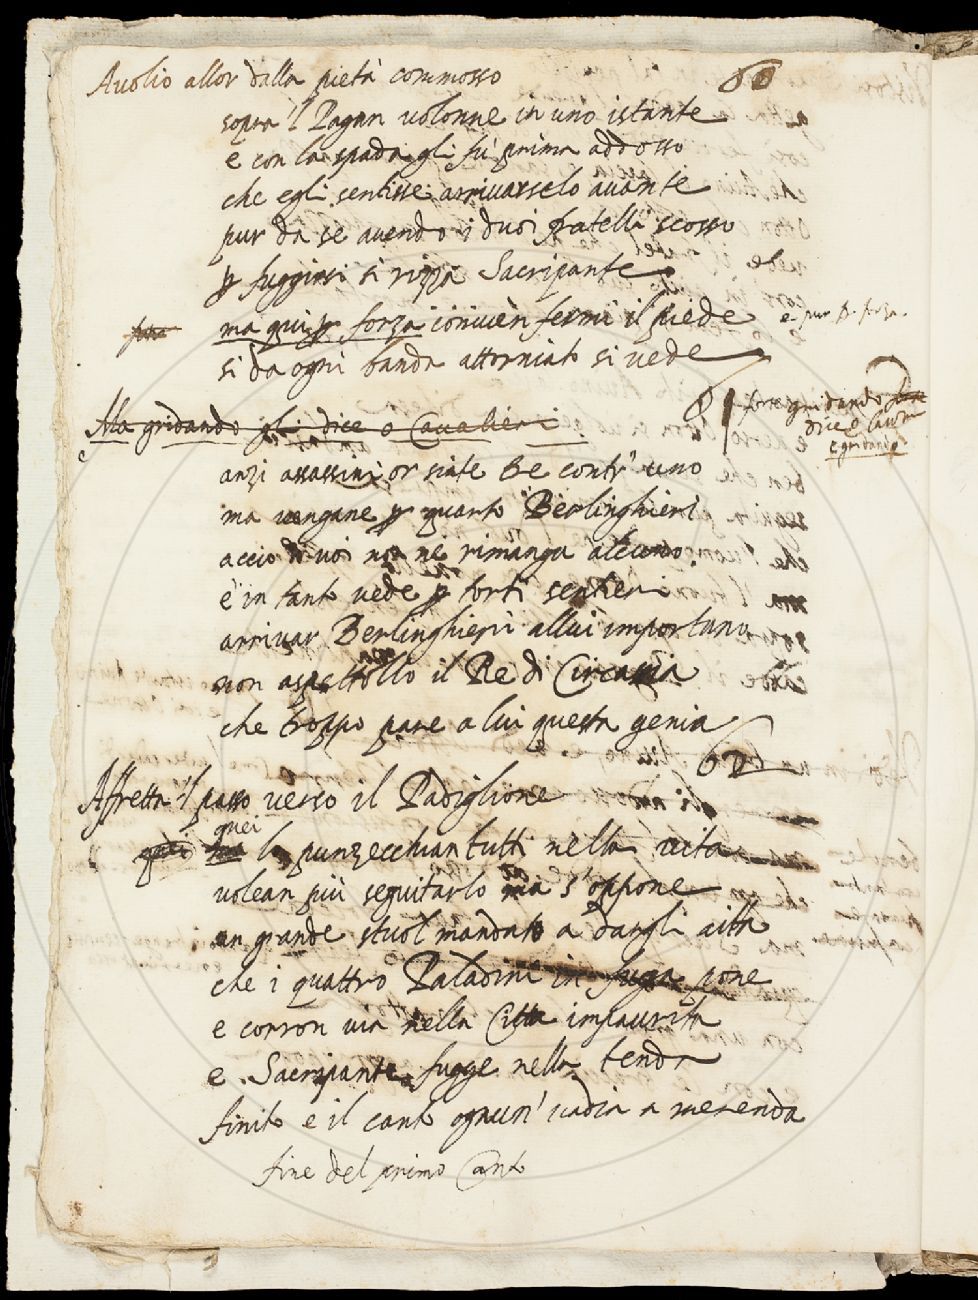 60
Auolio allor dalla pietà commosso
sopra 'l Pagan volonne in uno istante
e con la spada gli fù prima addosso
che egli sentisse arriuarselo auante
pur da se auendo i duoi fratelli scosso
p fuggirsi si rizza Sacripante
ma qui p forza conuien fermi il piede
e pur p. forza.
si da ogni banda attorniato si uede
61
Ma gridando gli dice o Caualieri
forse gridando
dice o Caua
e gridando
anzi assassini or siate tre contr' uno
ma uengane p quarto Berlinghieri
accio di uoi non ne rimanga alcuno
e in tanto uede p torti sentieri
arriuar Berlinghieri allui importuno
non aspettollo il Re di Circassia
che troppo pare a lui questa genia
62
Affretta 'l passo uerso il Padiglione
quei
lo punzecchian tutti nella uita
uolean più seguitarlo ma s'oppone
un grande stuol mandato a dargli aita
che i quattro Paladini in fuga pone
e corron uia nella Città impaurita
e Sacripante fugge nella tenda
finito è il canto ognun' uadia a merenda
fine del primo Canto